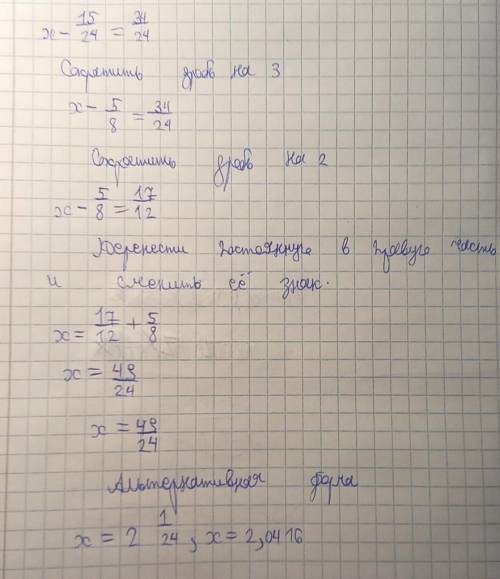 x - 15/24 = 34/24
Сократить дробь на 3
x - 5/8 = 34/24
Сократить дробь на 2
x - 5/8 = 17/12
Перенести постоянную в правую часть
и сменить её знак.
x = 17/12 + 5/8
x = 49/24
x = 49/24
Альтернативная форма
x = 2 1/24, x = 2,0416